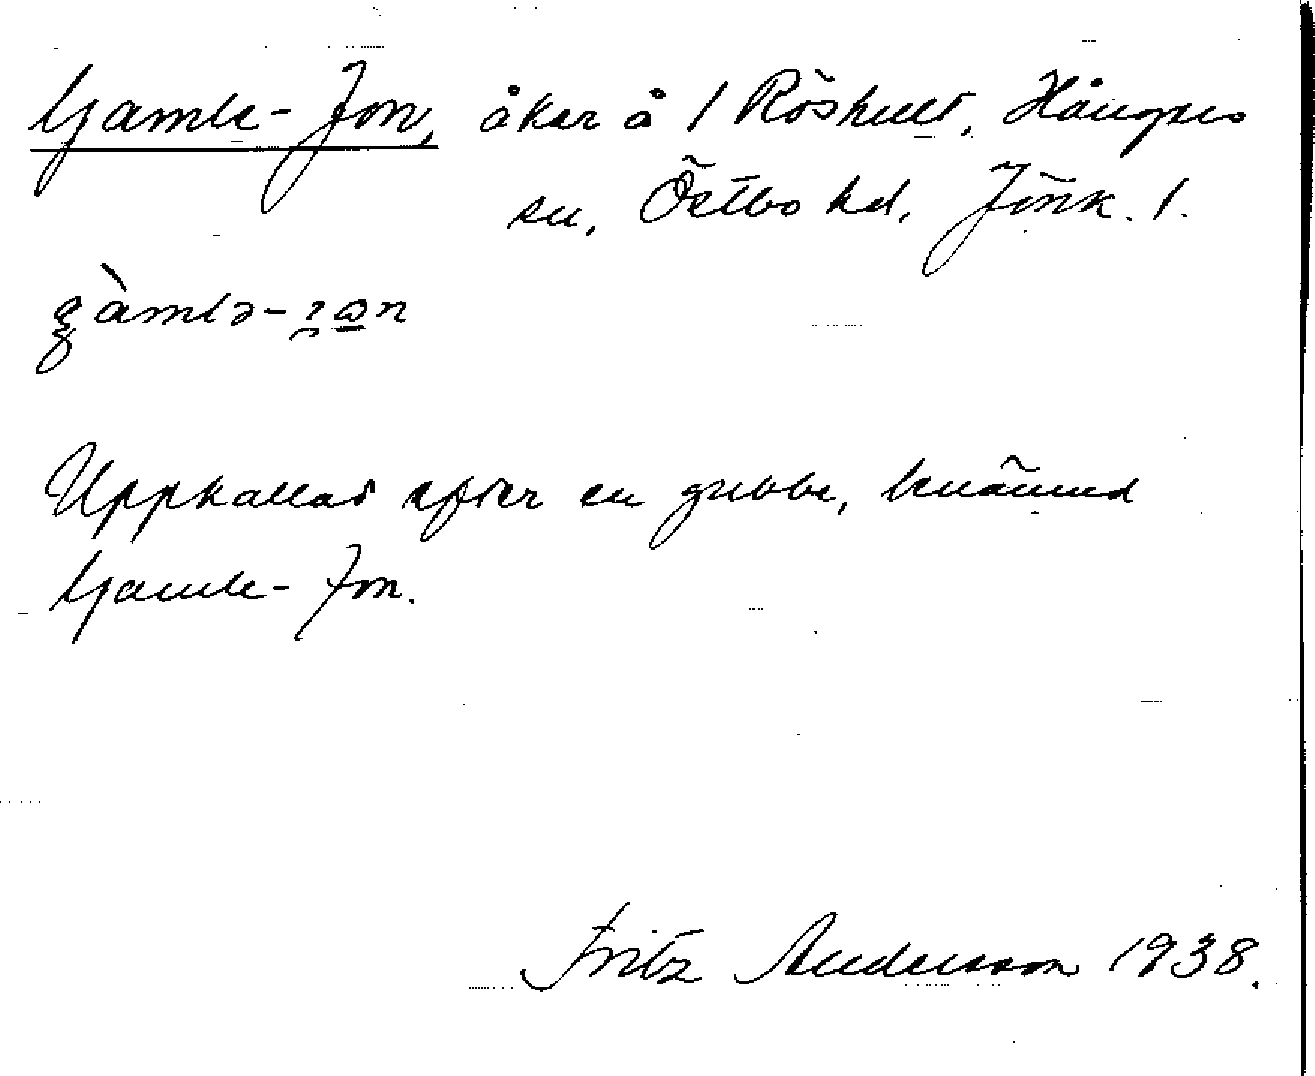 Gamle-Jon, åker å 1 Röshult, Hånger
sn, Östbo hd, Jönk. l.
Uppkallad efter en gubbe, benämnd
Gamle-Jon.
Fritz Andersson 1938.